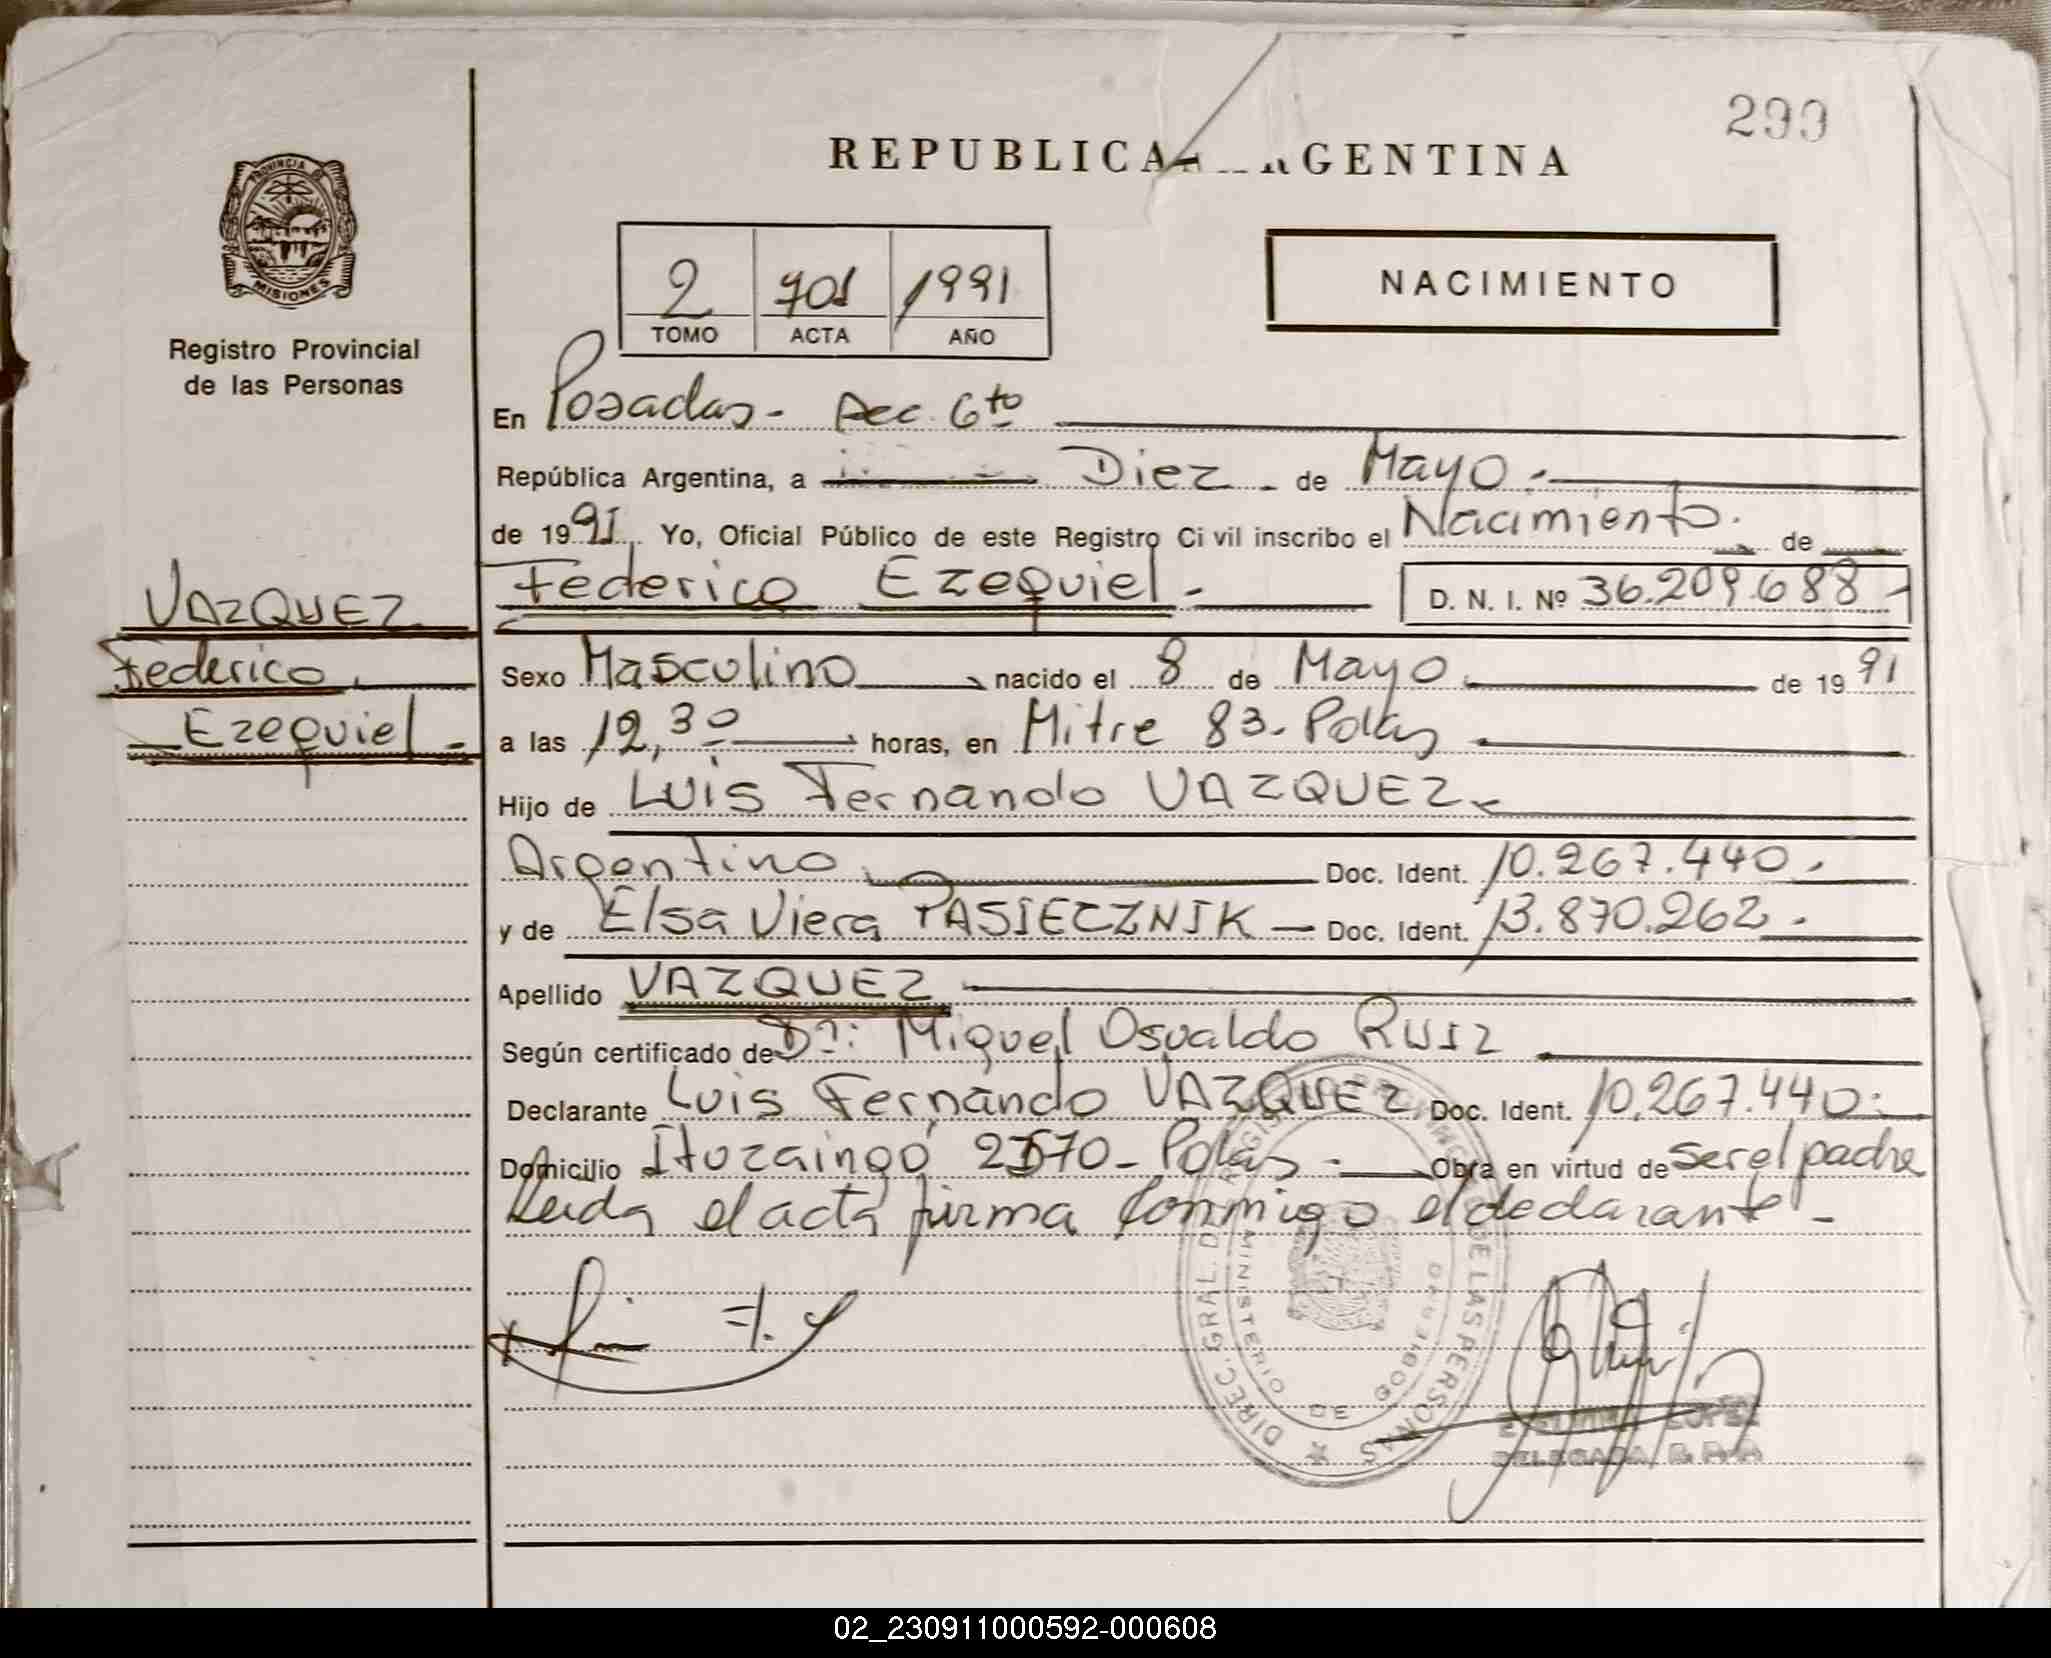 299
REPUBLICA ARGENTINA
PROVINCIA DE
MISIONES
Registro Provincial
de las Personas
2 701 1991
TOMO ACTA AÑO
NACIMIENTO
En Posadas - Sec. 6to
República Argentina, a Diez de Mayo
de 1991. Yo, Oficial Público de este Registro Civil inscribo el Nacimiento de
Federico Ezequiel - D. N. I. Nº 36.209.688
VAZQUEZ
Federico
Ezequiel
Sexo Masculino nacido el 8 de Mayo de 1991
a las 12,30 horas, en Mitre 83 - Pdas
Hijo de Luis Fernando VAZQUEZ
Argentino Doc. Ident. 10.267.440
y de Elsa Viera PASIECZNIK Doc. Ident. 13.870.262
Apellido VAZQUEZ
Según certificado de Dr: Miguel Osvaldo RUIZ
Declarante Luis Fernando VAZQUEZ Doc. Ident. 10.267.440
Domicilio Ituzaingó - Pdas - Obra en virtud de ser el padre
Leida el acta firma conmigo el declarante -
DIREC. GRAL. DEL REGISTRO PROVINCIAL DE LAS PERSONAS
MINISTERIO DE GOBIERNO
LOPEZ
DELEGADA
02_230911000592-000608